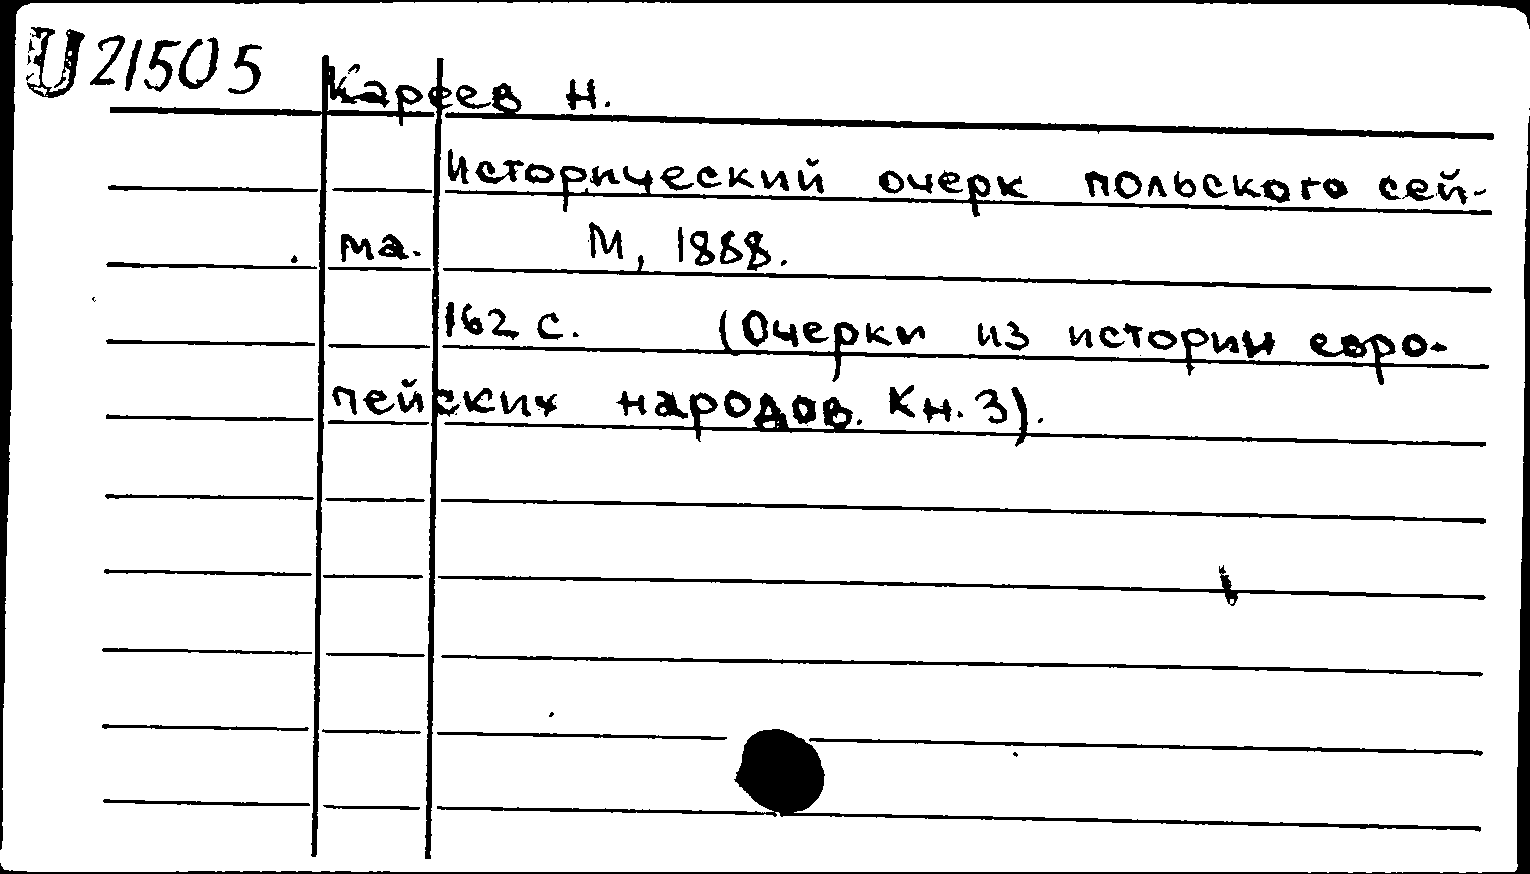 U 21505
Кареев Н.
Исторический очерк польского сей-
ма. М, 1888.
162 с. (Очерки из истории евро-
пейских народов. Кн. 3).